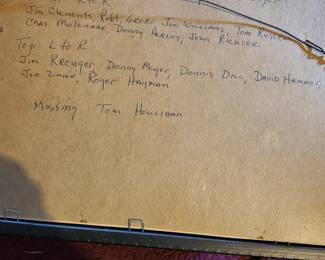 L to R
Jim Clements, Robt. Geroe Jon Williams, Tom Russe
Chas. Molenaar Donny Henley, John Richter
Top L to R
Jim Kreuger, Donny Meyer, Dennis Dill, David Hammer,
Joe Zana, Roger Hayman
Missing Tom Houlihan